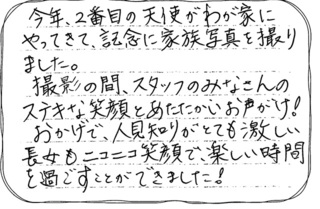 今年、2番目の天使がわが家に
やってきて、記念に家族写真を撮り
ました。
撮影の間、スタッフのみなさんの
ステキな笑顔とあたたかいお声がけ!
おかげで、人見知りがとても激しい
長女もニコニコ笑顔で、楽しい時間
を過ごすことができました!